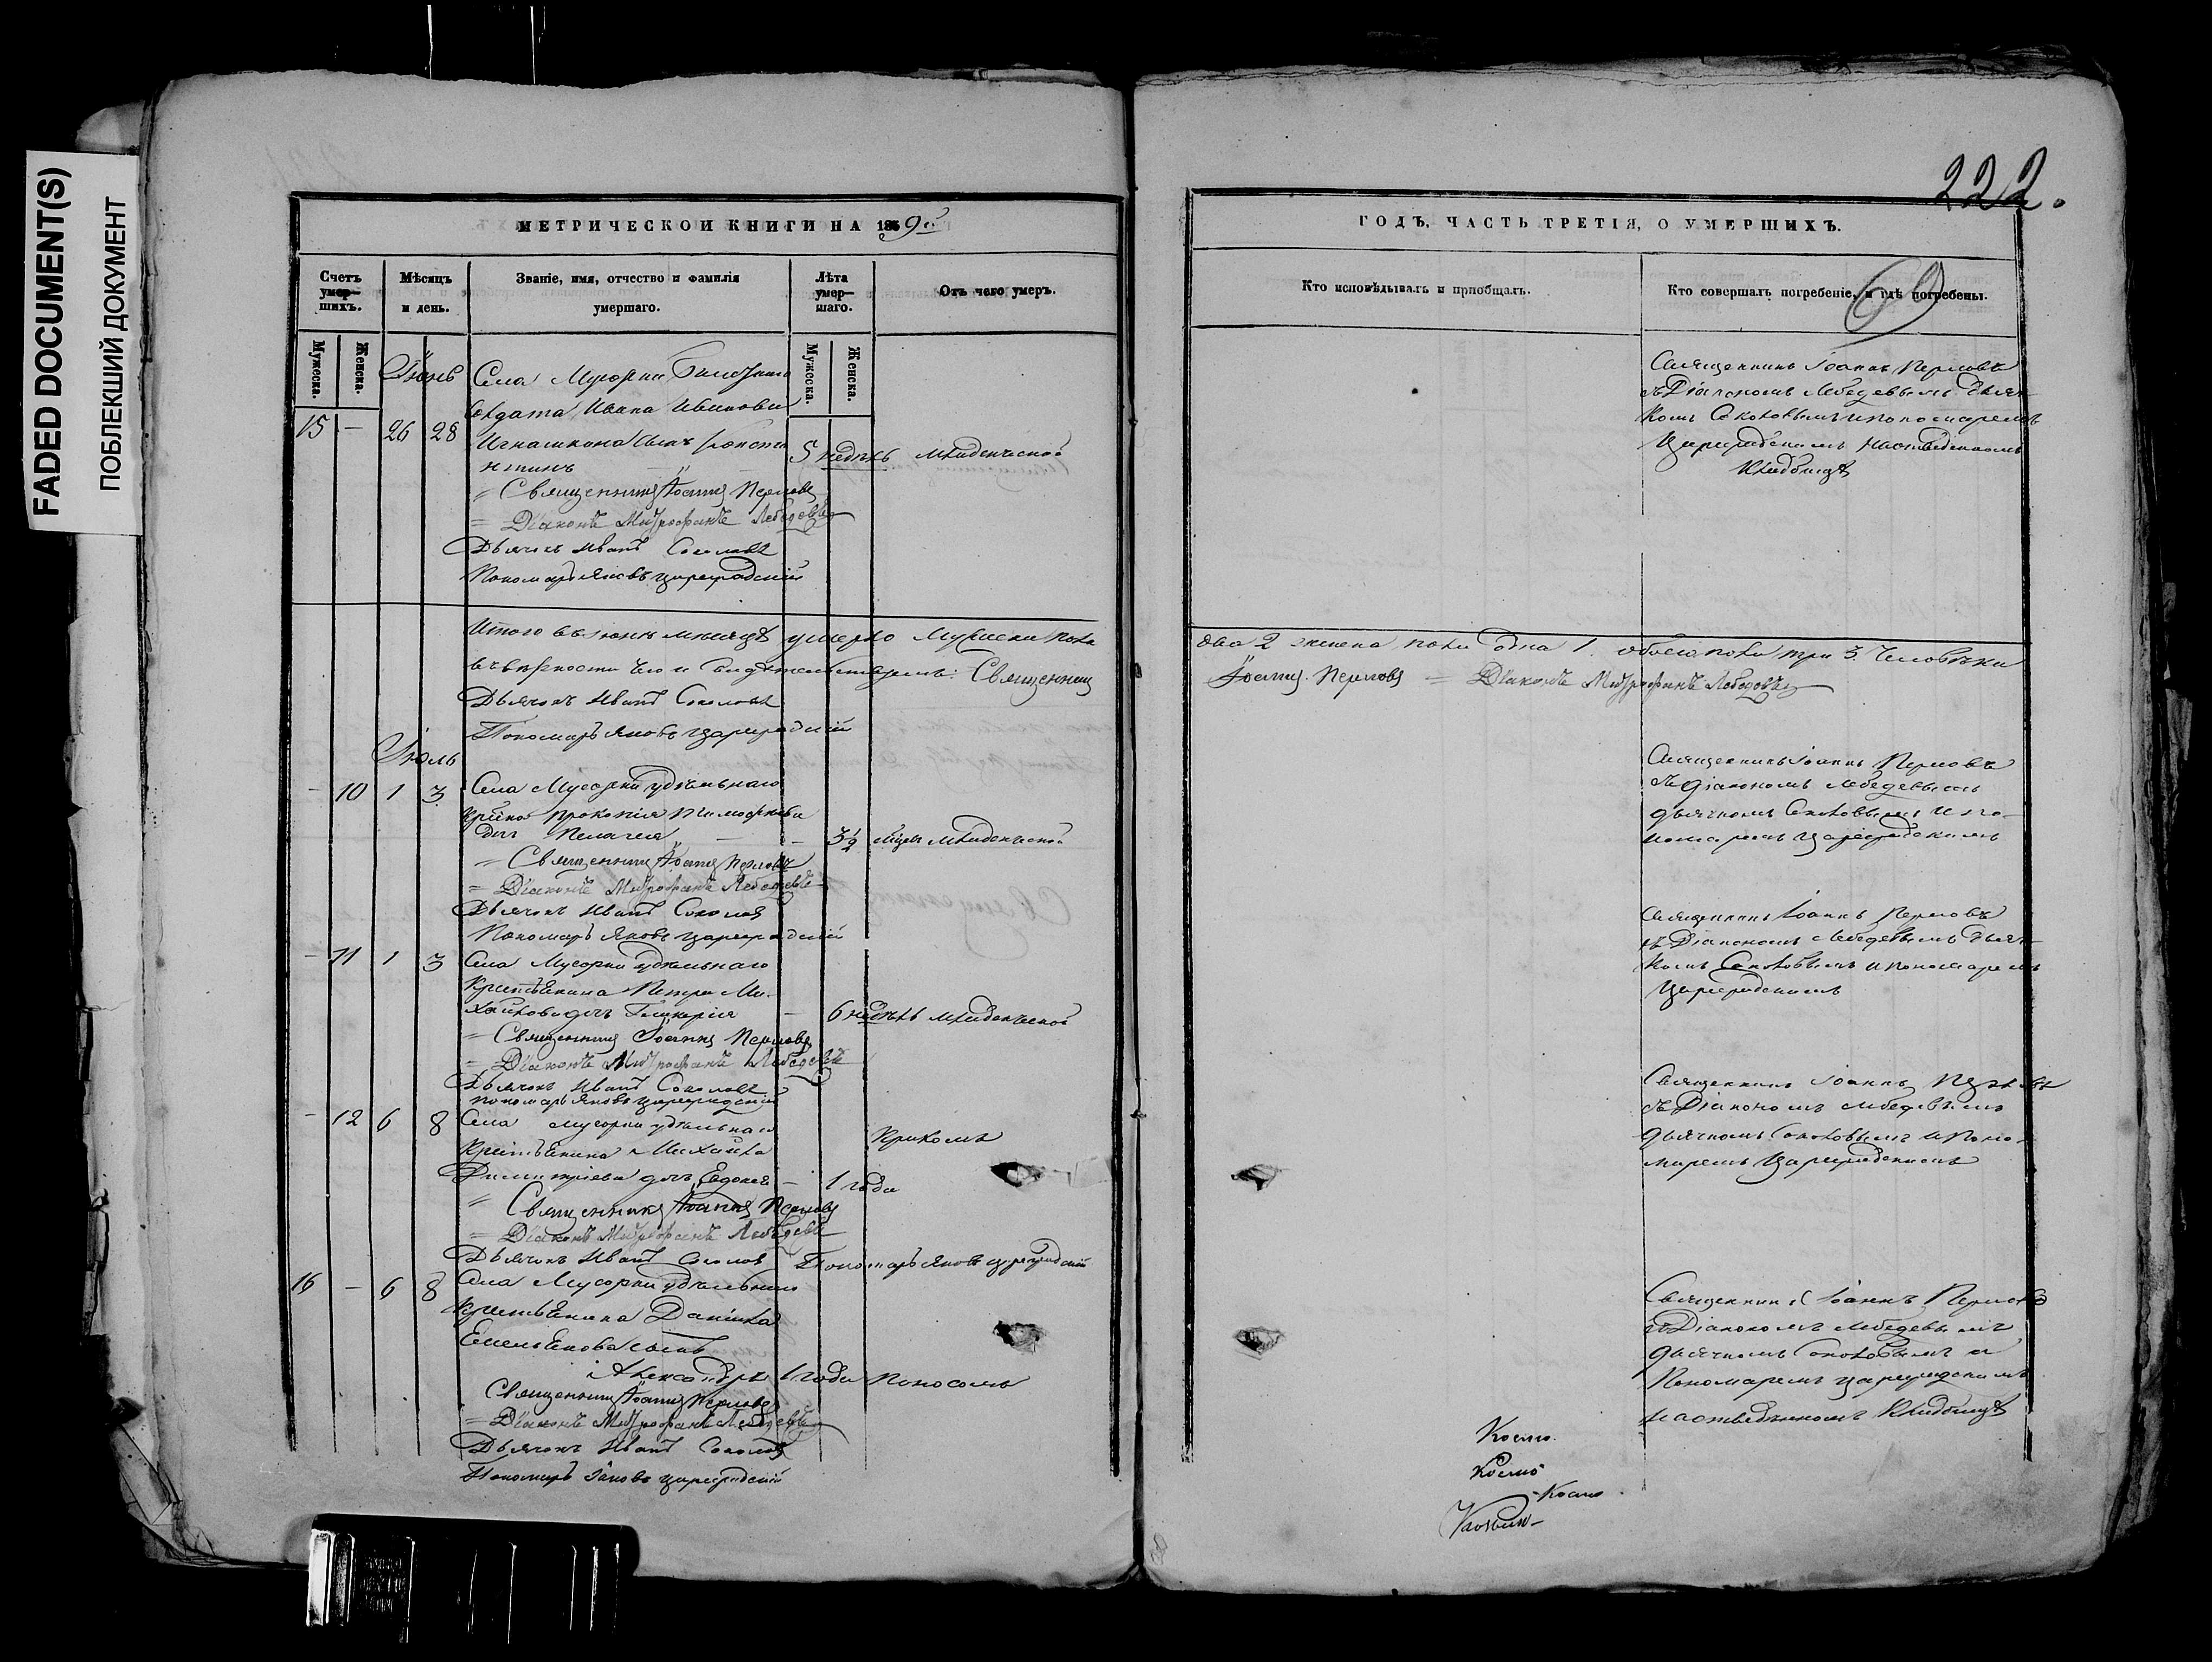 FADED DOCUMENT(S)
ПОБЛЕКШИЙ ДОКУМЕНТ
МЕТРИЧЕСКОЙ КНИГИ НА 1859й
Счетъ умер—шихъ.
Мѣсяцъ и день.
Званіе, имя, отчество и фамилія умершаго.
Лѣта умер—шаго.
Отъ чего умеръ.
Мужеска.
Женска.
Мужеска.
Женска.
Іюнь
Села Мусорки
солдата Ивана Иванова
15 — 26 28
сынъ Консta
нтинъ
5 недѣль младенческой
Священникъ Іоаннъ Перловъ
Діаконъ Митрофанъ Лебедевъ
Дьячокъ Иванъ Соколовъ
Пономарь Яковъ Цареградскій
Итого въ іюнѣ мѣсяцѣ умерло мужеска пола
Священникъ
Дьячокъ Иванъ Соколовъ
Пономарь Яковъ Цареградскій
Іюль
— 10 1 3 Села Мусорки удѣльнаго
Прокопія Тимофеева
дочь Пелагея — — 3½ младенческой
Священникъ Іоаннъ Перловъ
Діаконъ Митрофанъ Лебедевъ
Дьячокъ Иванъ Соколовъ
Пономарь Яковъ Цареградскій
— 11 1 3 Села Мусорки удѣльнаго
Крестьянина Петра Ми-
хайлова дочь Гликерія — 6 недѣль младенческой
Священникъ Іоаннъ Перловъ
Діаконъ Митрофанъ Лебедевъ
Дьячокъ Иванъ Соколовъ
пономарь Яковъ Цареградскій
— 12 6 8 Села Мусорки удѣльнаго
Крестьянина Михаила
Крикомъ
Димитріева дочь — 1 года
Священникъ Іоаннъ Перловъ
Діаконъ Митрофанъ Лебедевъ
Дьячокъ Иванъ Соколовъ Пономарь Яковъ Цареградскій
16 — 6 8 Села Мусорки удѣльнаго
Крестьянина Данила
Емельянова сынъ
Александръ 1 года Поносомъ
Священникъ Іоаннъ Перловъ
Діаконъ Митрофанъ Лебедевъ
Дьячокъ Иванъ Соколовъ
Пономарь Іаковъ Цареградскій
222.
ГОДЪ, ЧАСТЬ ТРЕТІЯ, О УМЕРШИХЪ.
Кто исповѣдывалъ и пріобщалъ.
Кто совершалъ погребеніе, и гдѣ погребены.
69
Священникъ Іоаннъ Перловъ
съ Діакономъ Лебедевымъ Дьяч-
комъ Соколовымъ и пономаремъ
Цареградскимъ На отведенномъ
Кладбищѣ
два 2 женска пола одна 1. обоего пола три 3. человѣка
Іоаннъ Перловъ Діаконъ Митрофанъ Лебедевъ
Священникъ Іоаннъ Перловъ
съ Діакономъ Лебедевымъ
дьячкомъ Соколовымъ и по-
номаремъ Цареградскимъ
Священникъ Іоаннъ Перловъ
съ Діакономъ Лебедевымъ Дьяч-
комъ Соколовымъ и пономаремъ
Цареградскимъ
Священникъ Іоаннъ Перловъ
съ Діакономъ Лебедевымъ
дьячкомъ Соколовымъ и поно-
маремъ Цареградскимъ
Священникъ Іоаннъ Перловъ
съ Діакономъ Лебедевымъ
дьячкомъ Соколовымъ и
Пономаремъ Цареградскимъ
На отведенномъ Кладбищѣ